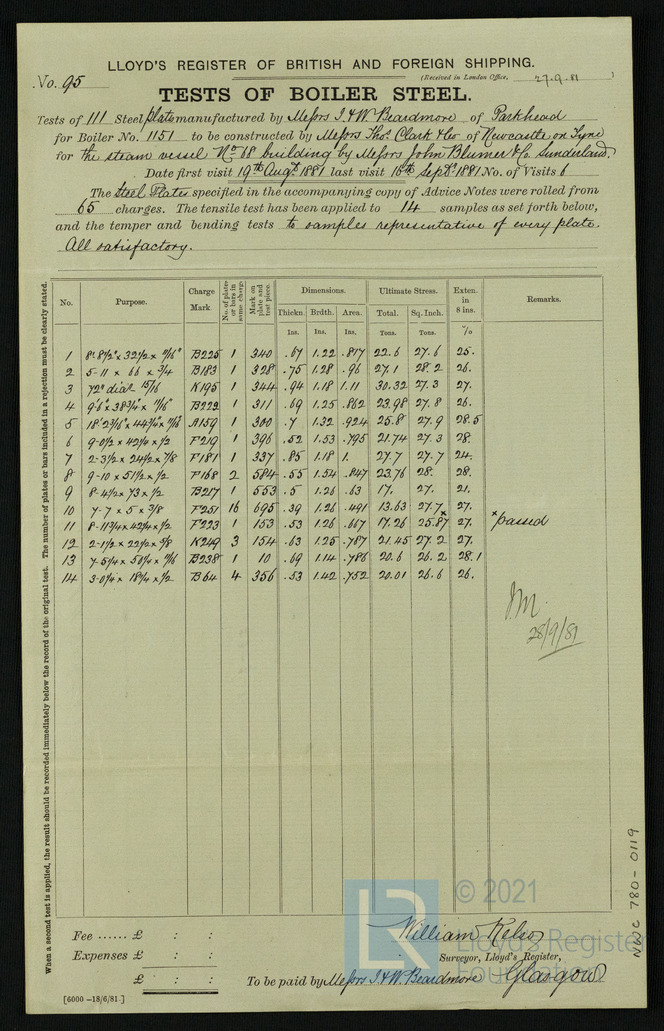 LLOYD'S REGISTER OF BRITISH AND FOREIGN SHIPPING.
No. 95 (Received in London Office, 27.9.81)
TESTS OF BOILER STEEL.
Tests of 111 Steel plates manufactured by Messrs I. & W. Beardmore of Parkhead
for Boiler No. 1151 to be constructed by Messrs Thos. Clark & Co of Newcastle on Tyne
for the steam vessel No 68 building by Messrs John Blumer & Co. Sunderland.
Date first visit 19th Augt. 1881 last visit 16th Septr. 1881 No. of Visits 6
The Steel Plates specified in the accompanying copy of Advice Notes were rolled from
65 charges. The tensile test has been applied to 14 samples as set forth below,
and the temper and bending tests to samples representative of every plate.
All satisfactory.
When a second test is applied, the result should be recorded immediately below the record of the original test. The number of plates or bars included in a rejection must be clearly stated.
No. Purpose. Charge Mark. No. of plates or bars in same charge Mark on plate and test piece. Dimensions. Ultimate Stress. Exten. in 8 ins. Remarks.
Thickn. Brdth. Area. Total. Sq. Inch.
Ins. Ins. Ins. Tons. Tons. %
1 8'.8½" x 32½ x 11/16" B225 1 340 .67 1.22 .817 22.6 27.6 25.
2 5-11 x 66 x ¾ B183 1 328 .75 1.28 .96 27.1 28.2 26.
3 72" diar 15/16 K195 1 344 .94 1.18 1.11 30.32 27.3 27.
4 9'.6" x 38¾" x 11/16" B222 1 311 .69 1.25 .862 23.98 27.8 26.
5 18' 2 3/16" x 44¾" x 11/16" A159 1 300 .7 1.32 .924 25.8 27.9 28.5
6 9-0½ x 42¼ x ½ F219 1 396 .52 1.53 .795 21.74 27.3 28.
7 2-3½ x 24½ x 7/8 F181 1 337 .85 1.18 1. 27.7 27.7 24.
8 9-10 x 51½ x ½ F168 2 584 .55 1.54 .847 23.76 28. 28.
9 8-4½ x 73 x ½ B217 1 553 .5 1.26 .63 17. 27. 21.
10 7-7 x 5 x 3/8 F251 16 695 .39 1.26 .491 13.63 27.7 27.
11 8-11¾ x 42¼ x ½ F223 1 153 .53 1.26 .667 17.26 25.87 x 27. x passed
12 2-1½ x 22½ x 5/8 K249 3 154 .63 1.25 .787 21.45 27.2 27.
13 7-5¼ x 50¼ x 11/16 B238 1 10 .69 1.14 .786 20.6 26.2 28.1
14 3-0¼ x 18¼ x ½ B64 4 356 .53 1.42 .752 20.01 26.6 26.
J.M.
28/9/81
NWC 780-0119
LR © 2021
Lloyd's Register
Foundation
Fee ...... £ : : William Kelso
Expenses £ : : Surveyor, Lloyd's Register,
£ : : To be paid by Messrs I. & W. Beardmore Glasgow
[6000 -18/6/81.]